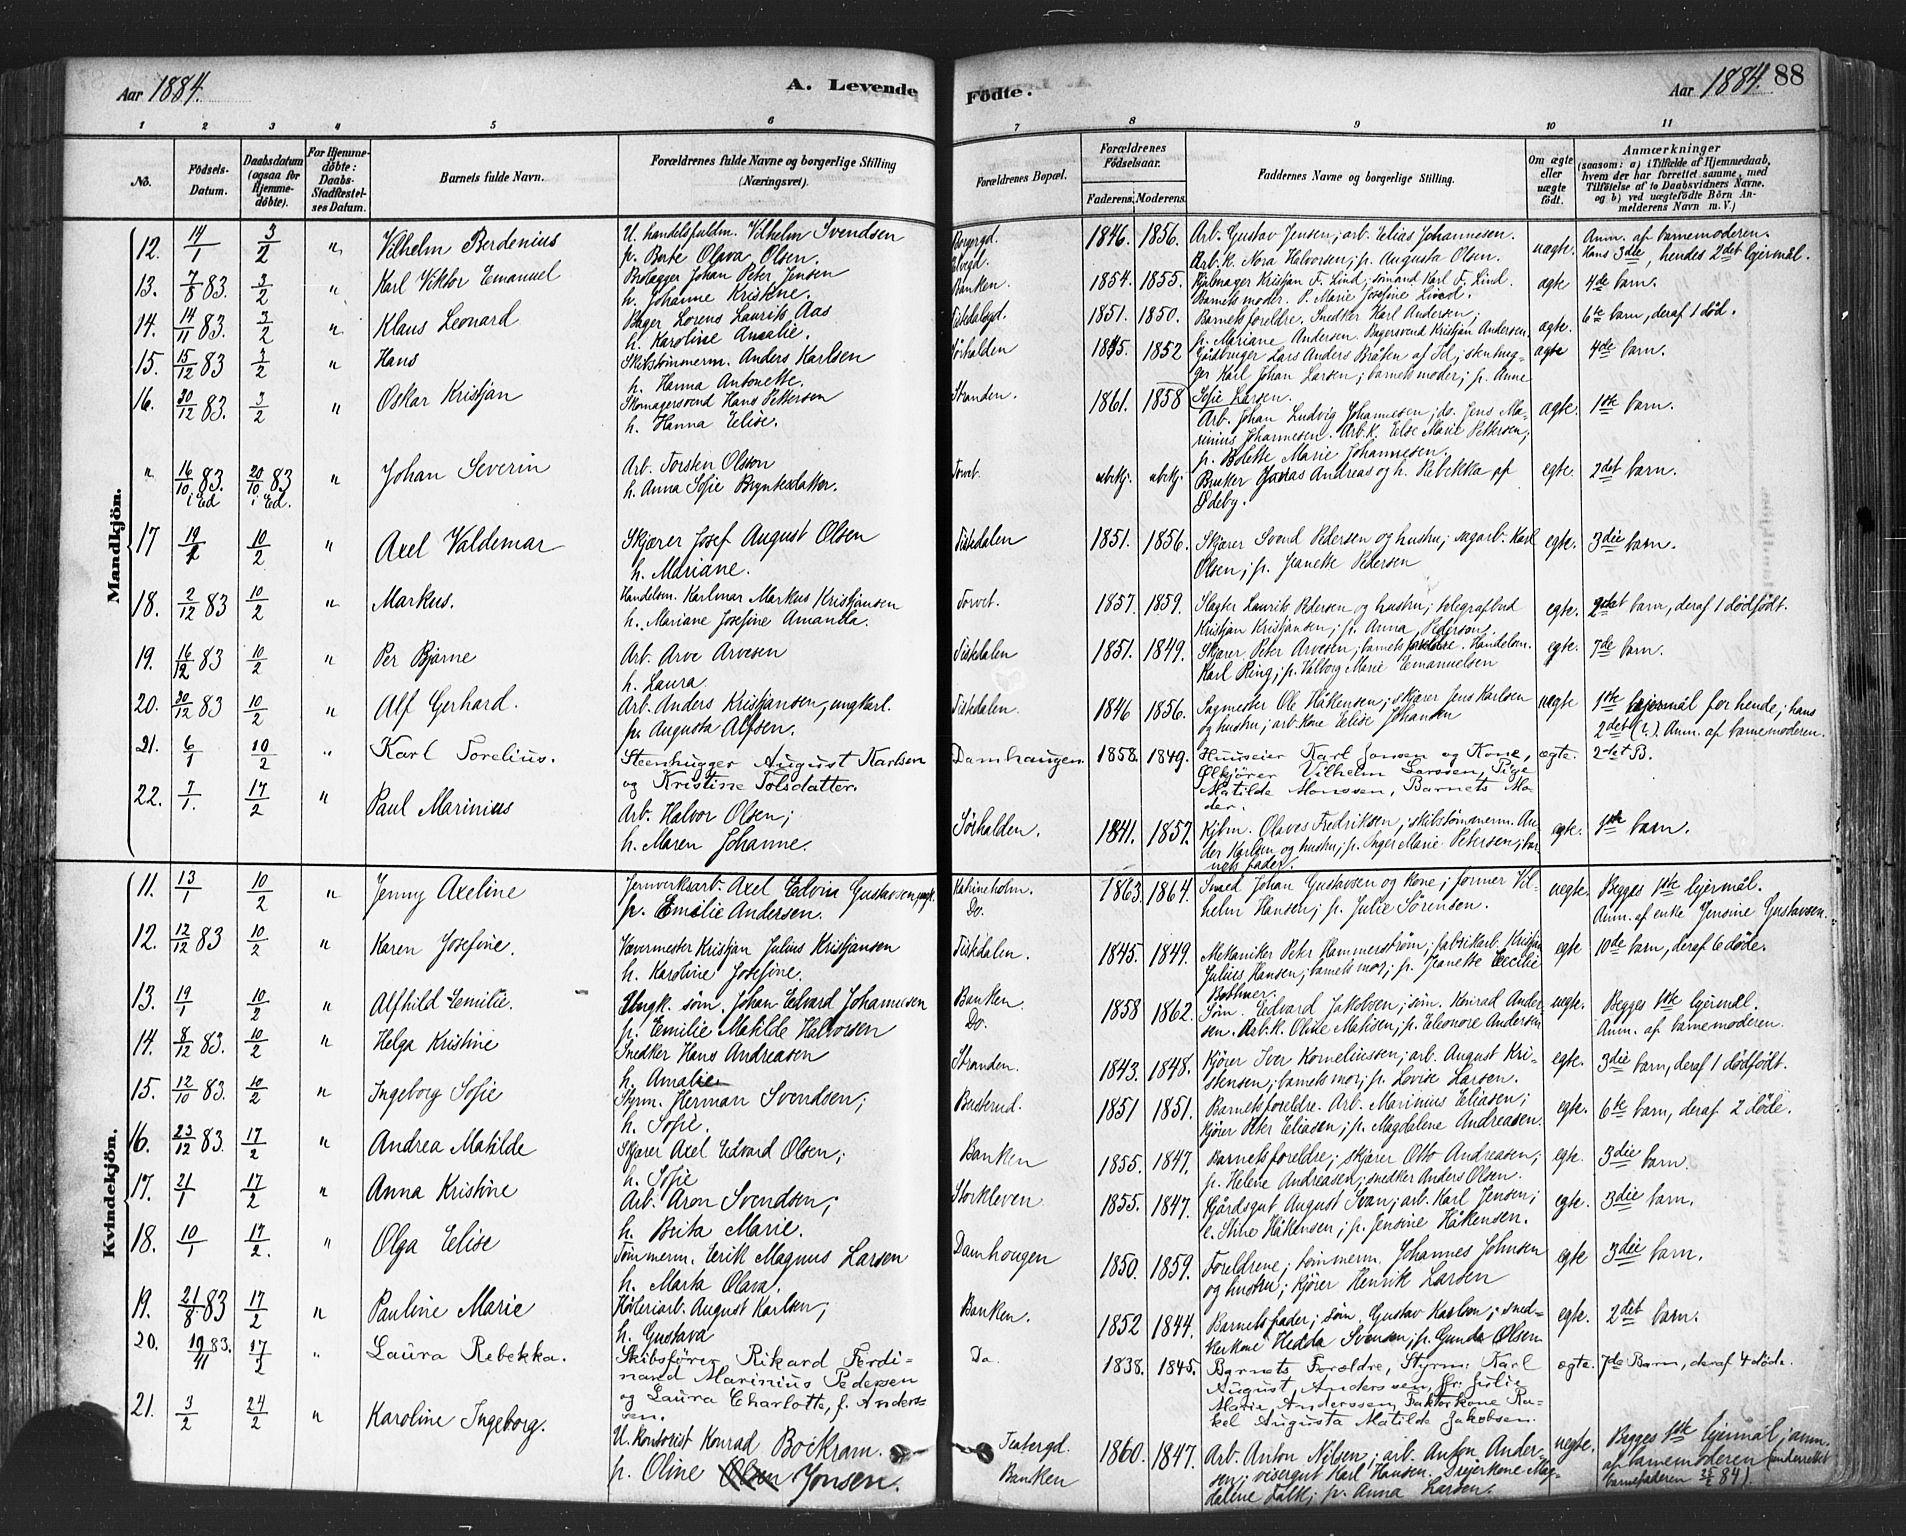 Aar 1884.
A. Levende
Födte.
Aar 1884. 88
1 2 3 4 5 6 7 8 9 10 11
No.
Födsels-Datum.
Daabsdatum (ogsaa for Hjemme-döbte).
For Hjemme-döbte: Daabs-Stadfæstel-ses Datum.
Barnets fulde Navn.
Forældrenes fulde Navne og borgerlige Stilling (Næringsvei).
Forældrenes Bopæl.
Forældrenes Födselsaar.
Faderens. Moderens.
Faddernes Navne og borgerlige Stilling.
Om ægte eller uægte födt.
Anmærkninger
(saasom: a) i Tilfælde af Hjemmedaab, hvem der har forrettet samme, med Tilföielse af to Daabsvidners Navne, og b) ved uægtefödte Börn An-melderens Navn m. V.)
Mandkjön.
12. 14/1 3/2 " Vilhelm Berdenius U. handelsfuldm. Vilhelm Svendsen 1846. 1856. Arb. Gustav Jensen; arb. Elias Johannesen. uægte. Anm. af barnemoderen.
p. Berte Olava Olsen. Arb.k. Nora Halvorsen; p. Augusta Olsen. Hans 3die, hendes 2det lejermål.
13. 7/8 83. 3/2 " Karl Viktor Emanuel Brolægger Johan Peter Jensen Banken. 1854. 1855. Kristjan F. Lind; sömand Karl F. Lind. ægte 4de barn.
h. Johanne Kristine. Barnets moder. P. Marie Josefine Lind.
14. 14/11 83. 3/2 " Klaus Leonard Bager Lorens Laurits Aas 1851. 1850. Barnets foreldre. Snedker Karl Andersen; ægte. 6te barn, deraf 1 död.
h. Karoline Amalie. p. Mariane Andersen. Bagersvend Kristjan Andersen.
15. 15/12 83 3/2 " Hans Skibstömmerm. Anders Karlsen Sörhalden 1845. 1852 Lars Anders Bråten af Id; stenhug- ægte 4de barn.
h. Hanna Antonette. ger Karl Johan Larsen; barnets moder; p. Anne
16. 30/12 83. 3/2 " Oskar Kristjan Skomagersvend Hans Pettersen Stranden. 1861. 1858 Sofie Larsen. ægte. 1ste barn.
h. Hanna Elise. Arb. Johan Ludvig Johannesen; do. Jens Ma-
rinius Johannesen. Arb.k. Else Marie Pettersen;
p. Bolette Marie Johannesen.
" 16/10 83. i Ed 20/10 83 i Ed. " Johan Severin Arb. Torsten Olsson Torvet. ubekj. ubekj. Bruker Jonas Andreas og h. Rebekka af egte. 2det barn.
h. Anna Sofie Bryntesdatter. Ödeby.
17 19/1 10/2 " Axel Valdemar Skjærer Josef August Olsen Tistedalen 1851. 1856. Skjærer Svend Pedersen og hustru; sagarb. Karl egte. 3die barn.
h. Mariane. Olsen; p. Jeanette Pedersen
18. 2/12 83 10/2 " Markus. Handelsm. Karlmar Markus Kristjansen Torvet. 1857. 1859. Slagter Laurits Pedersen og hustru; telegrafbud egte. 2det barn, deraf 1 dödfödt.
h. Mariane Josefine Amanda. Kristjan Kristjansen; p. Anna Pedersen.
19. 16/12 83 10/2 " Per Bjarne Arb. Arve Arvesen Tistedalen 1851. 1849. Skjærer Peter Arvesen; barnets foreldre. Handelsm. egte. 7de barn.
h. Laura. Karl Ring; p. Valborg Marie Emanuelsen
20. 30/12 83 10/2 " Alf Gerhard. Arb. Anders Kristjansen, ungkarl. Tistedalen. 1846 1856. Sagmester Ole Håkensen; skjærer Jens Karlsen uegte 1ste lejermål for hende; hans
p. Augusta Alfsen. og hustru; arb. kone Elise Johansen 2det (?). Anm. af barnemoderen.
21. 6/1 10/2 " Karl Torelius. Steenhugger August Karlsen Damhaugen 1858. 1849. Huuseier Karl Jansen og Kone, ægte. 2det B.
og Kristine Tolsdatter. Ölkjörer Vilhelm Larssen, Pige
Matilde Monssen, Barnets Mo-
der.
22. 7/1. 17/2 " Paul Marinius Arb. Halvor Olsen; Sörhalden. 1841. 1857. Kjbm. Olaves Fredriksen, skibstömmerm. An- egte. 1ste barn.
h. Maren Johanne. ders Karlsen og hustru; p. Inger Marie Petersen; bar-
nets fader.
Kvindekjön.
11. 13/1 10/2 " Jenny Axeline Jernverksarb. Axel Edvin Gustavsen, ungk. Katrineholm. 1863 1864. Smed Johan Gustavsen og kone; former Vil- uegte. Begges 1ste lejermål.
p. Emilie Andersen. Do. helm Hansen; p. Julie Sörensen. Anm. af enke Jensine Gustavsen.
12. 12/12 83 10/2 " Karen Josefine. Vævermester Kristjan Julius Kristjansen Tistedalen. 1845. 1849. Mekaniker Peter Hammerström; fabrikarb. Kristjan egte 10de barn, deraf 6 döde.
h. Karoline Josefine. Julius Hansen; barnets mor; p. Jeanette Cecilie
Böhmer.
13. 19/1 10/2 " Alfhild Emilie. Ungk. söm. Johan Edvard Johannesen Banken 1858 1862. Söm. Edvard Jakobsen; söm. Konrad Ander- uegte. Begges 1ste lejermål.
p. Emilie Matilde Halvorsen Do. sen. Arb.k. Oline Matisen; p. Eleonore Andersen Anm. af barnemoderen.
14. 8/12 83. 10/2 " Helga Kristine Snedker Hans Andreasen Stranden. 1843. 1848. Kjörer Iver Korneliussen; arb. August Kri- egte. 3die barn, deraf 1 dödfödt.
h. Amalie stensen; barnets mor; p. Lovise Larsen.
15. 12/10 83. 10/2 " Ingeborg Sofie Styrm. Herman Svendsen; Busterud. 1851 1851. Barnets foreldre. Arb. Marinius Eliasen; egte. 6te barn, deraf 2 döde.
h. Sofie. Kjörer Peter Eliasen; p. Magdalene Andreasen.
16. 23/12 83. 17/2 " Andrea Matilde Skjærer Axel Edvard Olsen; Banken 1855. 1847. Barnets foreldre; skjærer Otto Andreasen; egte. 3die barn.
h. Sofie p. Helene Andreasen; snedker Anders Olsen.
17. 21/1 17/2 " Anna Kristine Arb. Aron Svendsen; Storkleven 1855. 1847. Gårdsgut August Ivan; arb. Karl Jensen; egte. 3die barn.
h. Brita Marie. e. Stine Håkensen; p. Jensine Håkensen.
18. 10/1 17/2. " Olga Elise Tömmerm. Erik Magnus Larsen Damhougen 1850. 1859. Foreldrene; tömmerm. Johannes Johnsen egte 3die barn.
h. Marta Olava. og hustru; kjörer Henrik Larsen
19. 21/8 83 17/2 " Pauline Marie Höleriarb. August Karlsen; Banken. 1852 1844. Barnets fader; söm. Gustav Karlsen; sned- egte. 2det barn.
h. Gustava kerkone Hedda Svensen; p. Gunda Olsen
20. 19/11 83. 17/2 " Laura Rebekka. Skibsförer Rikard Ferdi- Do 1838. 1845. Barnets Forældre, Styrm: Karl ægte. 7de Barn, deraf 4 döde.
nand Marinius Pedersen August Anderssen, fr. Julie
og Laura Charlotte, f. Anders- Marie Anderssen, Faktorkone Ra-
sen. kel Augusta Matilde Jakobsen.
21. 3/2 24/2 " Karoline Ingeborg. U. kontorist Konrad Bockram. Teatergd. 1860. 1847. Arb. Anton Nilsen; arb. Anton Ander- uegte. Begges 1ste lejermål; anm.
p. Oline Olsen Jonsen. Banken sen; visergut Karl Hansen. Drejerkone Mag- af barnemoderen (underrettet
dalene Falk; p. Anna Larsen. barnefaderen 25/2 84).